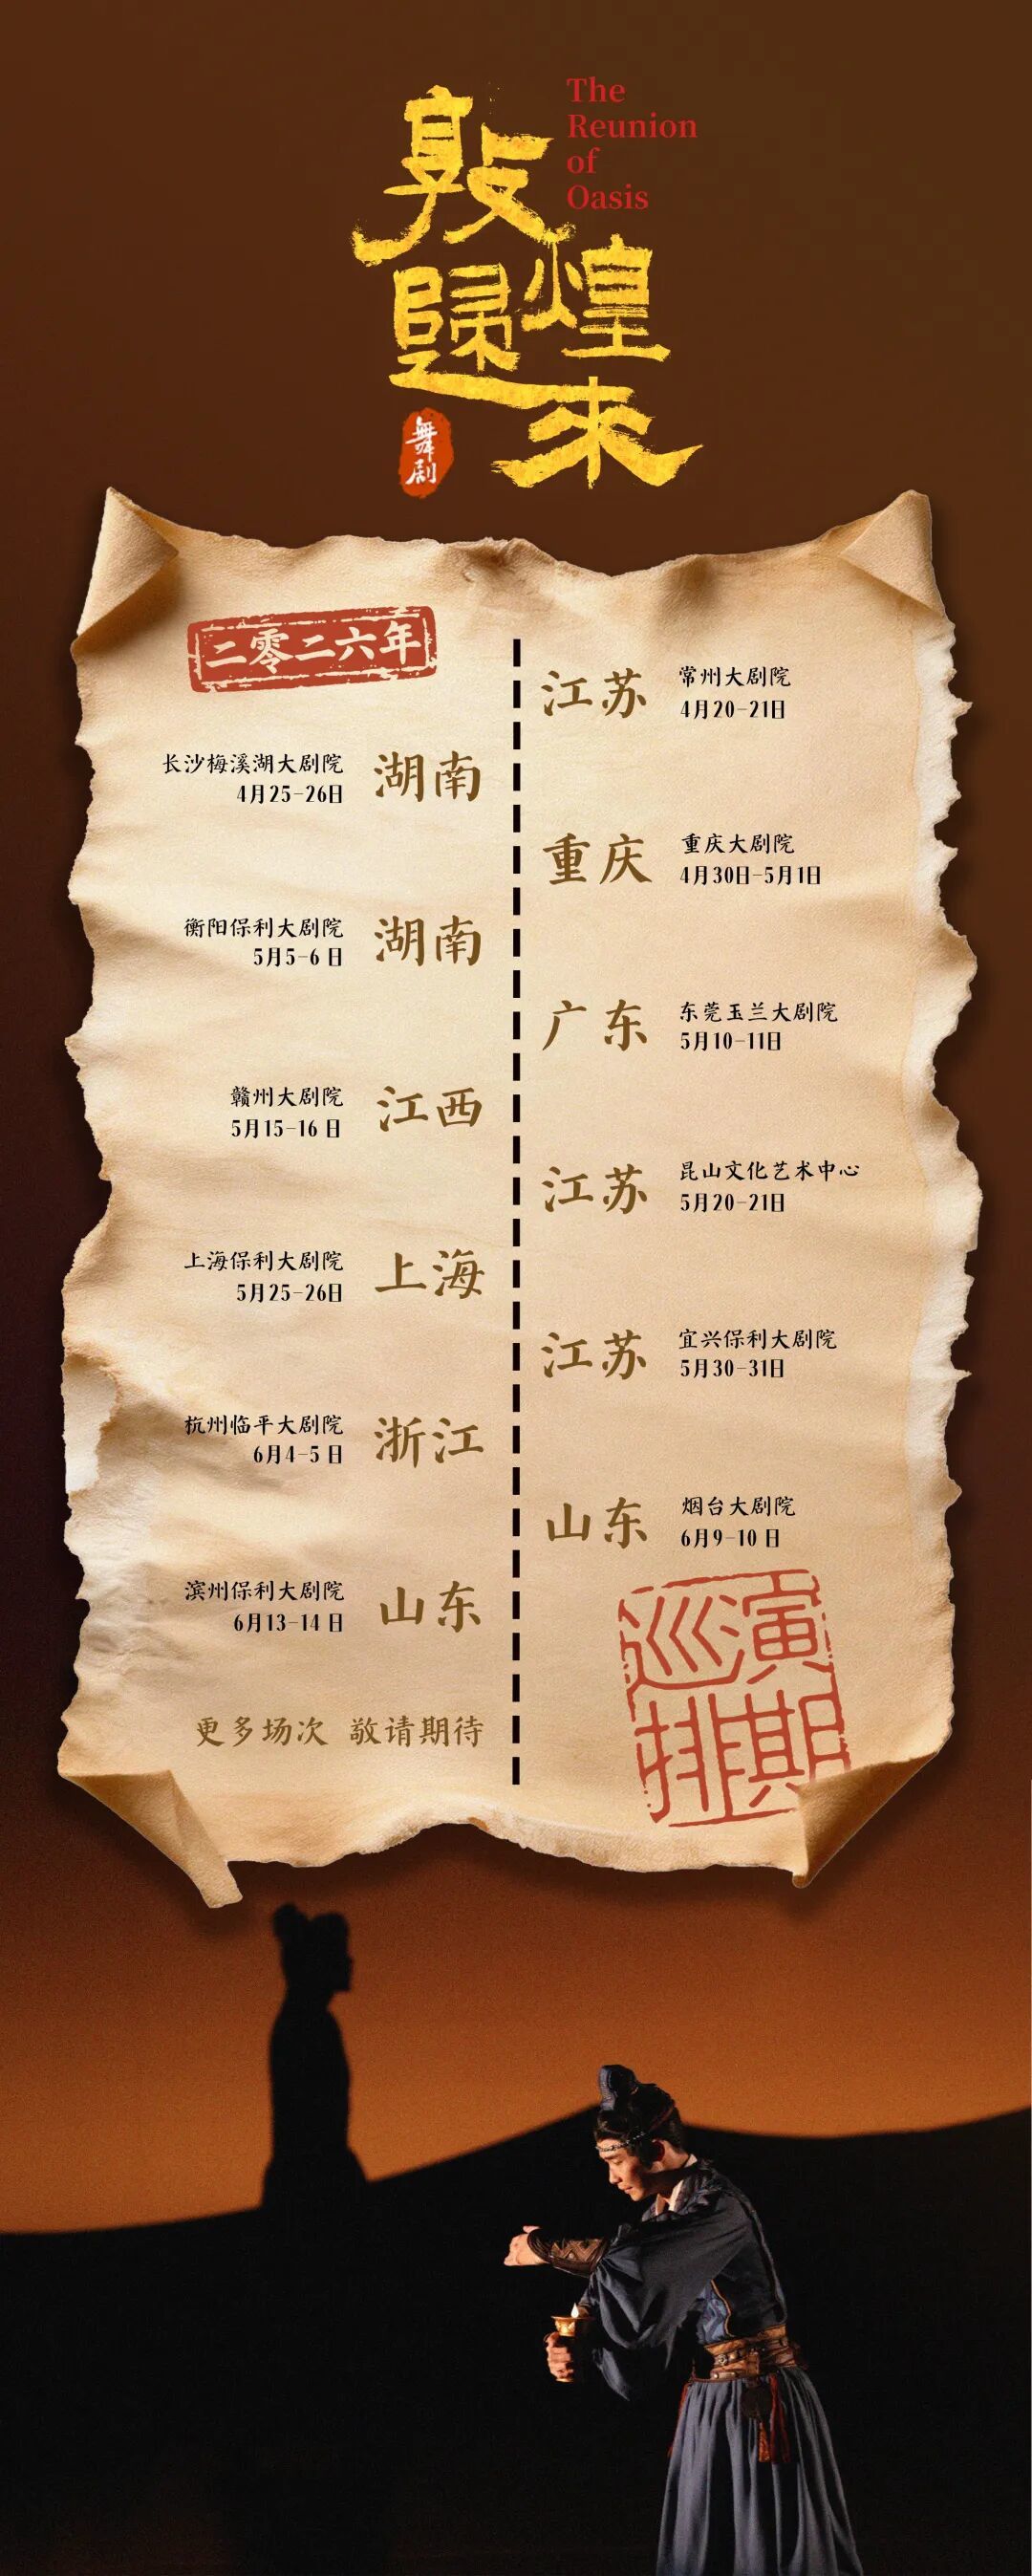 敦煌
歸來
The
Reunion
of
Oasis
舞剧
二零二六年
江苏
常州大剧院
4月20-21日
湖南
长沙梅溪湖大剧院
4月25-26日
重庆
重庆大剧院
4月30日-5月1日
湖南
衡阳保利大剧院
5月5-6 日
广东
东莞玉兰大剧院
5月10-11日
江西
赣州大剧院
5月15-16 日
江苏
昆山文化艺术中心
5月20-21日
上海
上海保利大剧院
5月25-26日
江苏
宜兴保利大剧院
5月30-31日
浙江
杭州临平大剧院
6月4-5 日
山东
烟台大剧院
6月9-10 日
山东
滨州保利大剧院
6月13-14 日
更多场次 敬请期待
巡演
排期